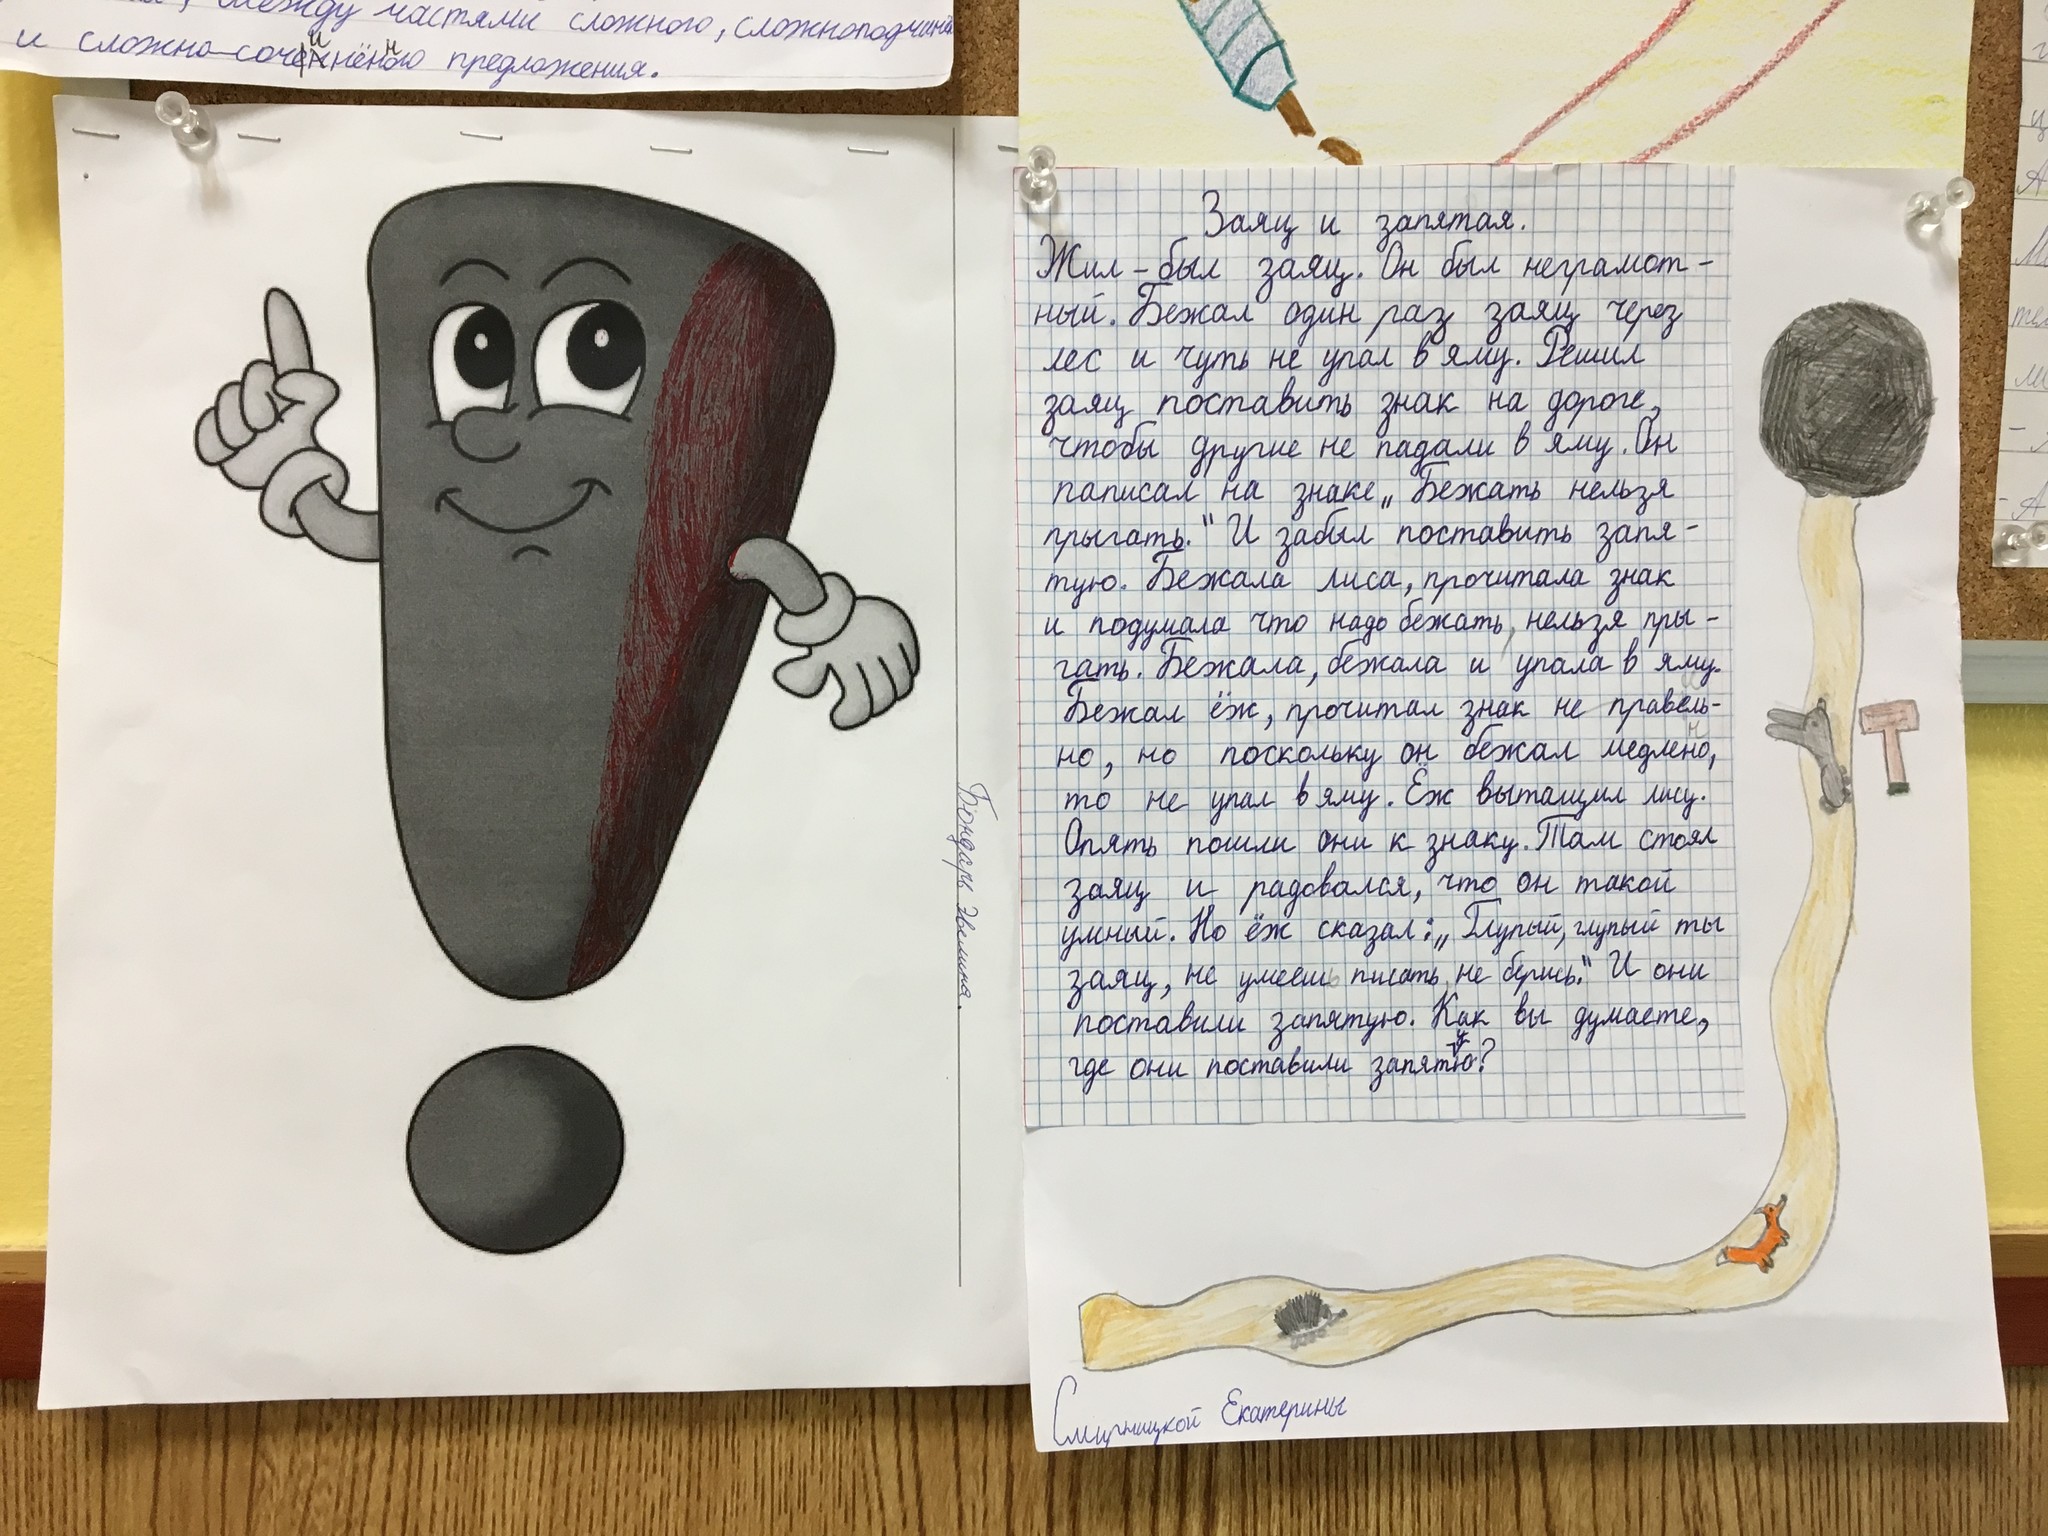 между частями сложного, сложноподчинён
и сложно-сочинённого предложения.
Бондарь Эвелина.
Заяц и запятая.
Жил-был заяц. Он был неграмот-
ный. Бежал один раз заяц через
лес и чуть не упал в яму. Решил
заяц поставить знак на дороге,
чтобы другие не падали в яму. Он
написал на знаке „Бежать нельзя
прыгать." И забыл поставить запя-
тую. Бежала лиса, прочитала знак
и подумала что надо бежать, нельзя пры-
гать. Бежала, бежала и упала в яму.
Бежал ёж, прочитал знак не правиль-
но, но поскольку он бежал медленно,
то не упал в яму. Ёж вытащил лису.
Опять пошли они к знаку. Там стоял
заяц и радовался, что он такой
умный. Но ёж сказал: „Глупый, глупый ты
заяц, не умеешь писать, не берись." И они
поставили запятую. Как вы думаете,
где они поставили запятую?
Смирницкой Екатерины